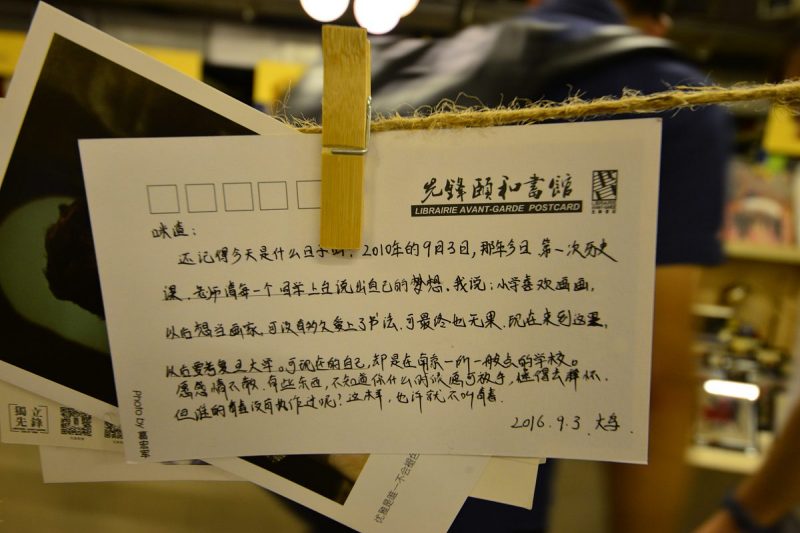 先锋颐和书馆
LIBRAIRIE AVANT-GARDE POSTCARD
还记得今天是什么日子 2010年的9月3日,那年今日 第一次历史
课,老师请每一个同学上台说出自己的梦想。我说:小学喜欢画画,
以后想当画家,可没有多久爱上了书法,可最终也无果,现在来到这里,
以后要考复旦大学。可现在的自己,却是在南京一所一般点的学校。
愿感情不散,有些东西,不知道你什么时候 可放手,选择去释怀
但谁的青春没有执作过呢?这 ,也许就不叫青春。
2016.9.3
Photo by
獨立
先鋒
优雅是唯一不会褪色